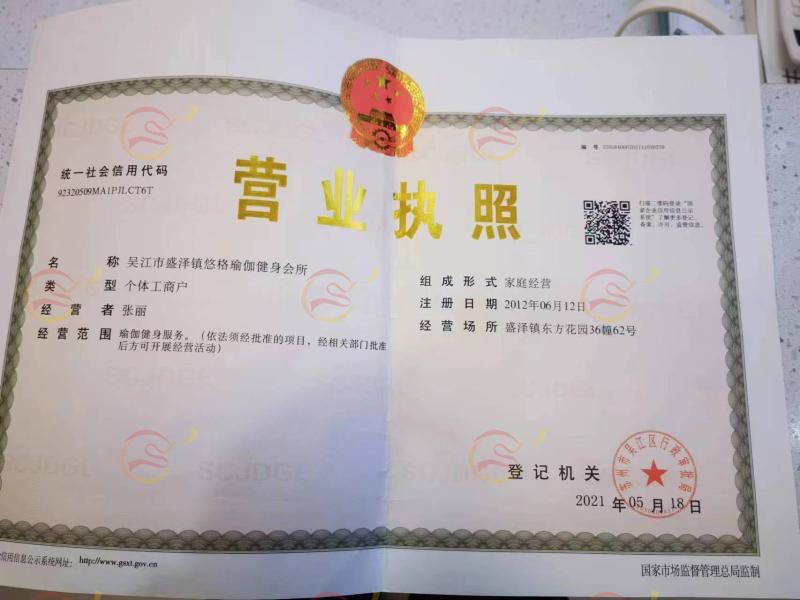 统一社会信用代码
92320509MA1PJLCT6T
营业执照
编 号
扫描二维码登录“国
家企业信用信息公示
系统”了解更多登记、
备案、许可、监管信息。
名 称 吴江市盛泽镇悠格瑜伽健身会所
类 型 个体工商户
经 营 者 张丽
经营范围 瑜伽健身服务。（依法须经批准的项目，经相关部门批准
后方可开展经营活动）
组成形式 家庭经营
注册日期 2012年06月12日
经营场所 盛泽镇东方花园36幢62号
登记机关
苏州市吴江区行政审批局
2021 年 05 月 18 日
SCJDGL
信用信息公示系统网址： http://www.gsxt.gov.cn
国家市场监督管理总局监制